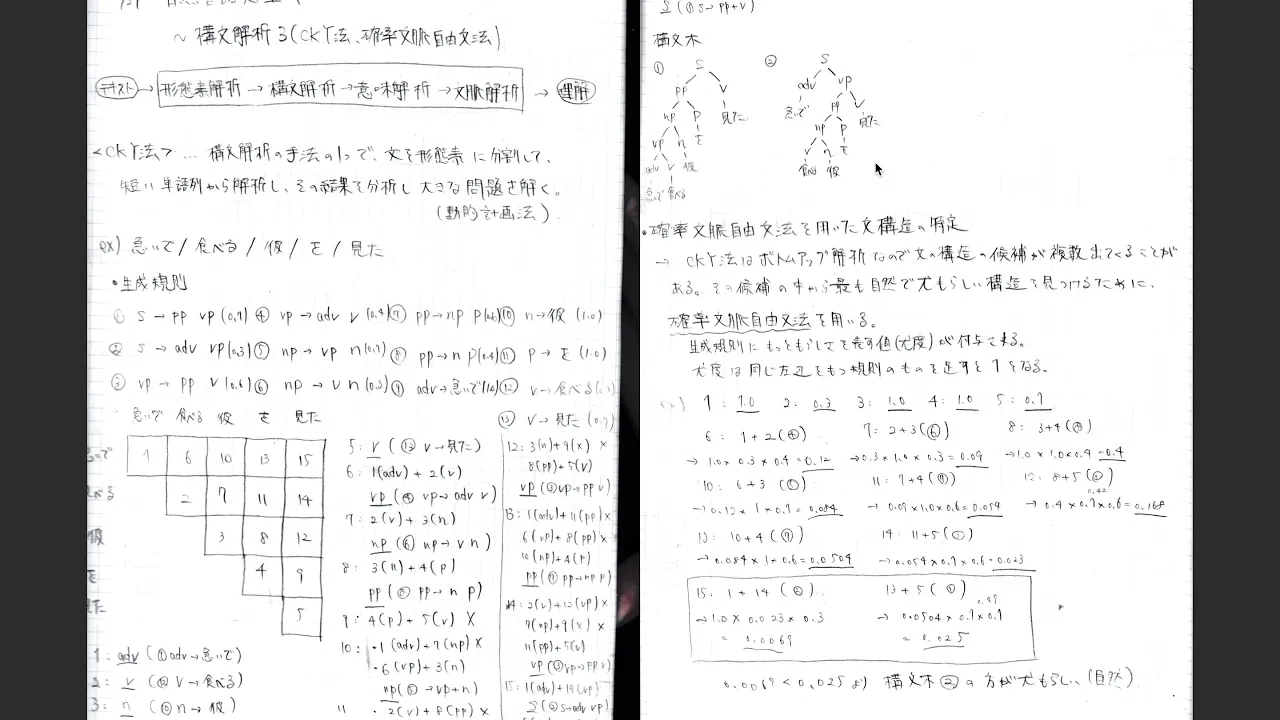 ～ 構文解析3(CKY法、確率文脈自由文法)
テキスト → 形態素解析 → 構文解析 → 意味解析 → 文脈解析 → 理解
<CKY法> … 構文解析の手法の1つで、文を形態素に分割して、
短い単語列から解析し、その結果を分析し大きな問題を解く。
(動的計画法)
ex) 急いで / 食べる / 彼 / を / 見た
・生成規則
① S→pp vp(0.7) ④ vp→adv v(0.4) ⑦ pp→np p(0.6) ⑩ n→彼 (1.0)
② S→adv vp(0.3) ⑤ np→vp n(0.7) ⑧ pp→n p(0.4) ⑪ p→を(1.0)
③ vp→pp v(0.6) ⑥ np→v n(0.3) adv→急いで(1.0) ⑫ v→食べる
⑬ v→見た(0.7)
急いで 食べる 彼 を 見た
1 6 10 13 15
2 7 11 14
3 8 12
4 9
5
1: adv (adv→急いで)
2: v (⑫ v→食べる)
3: n (⑩ n→彼)
5: v (⑬ v→見た)
6: 1(adv) + 2(v)
vp (④ vp→adv v)
7: 2(v) + 3(n)
np (⑥ np→v n)
8: 3(n) + 4(p)
pp (⑧ pp→n p)
9: 4(p) + 5(v) ×
10: ・1(adv) + 7(np) ×
・6(vp) + 3(n)
np(⑤→vp+n)
11 ・2(v) + 8(pp) ×
12: 3(n)+9(x) ×
8(pp)+5(v)
vp(③vp→pp v)
13: 1(adv)+11(pp)×
6(vp)+8(pp)×
10(np)+4(p)
pp(⑦pp→np p)
14: 2(v)+12(vp)×
7(np)+9(x)×
11(pp)+5(v)
vp(③vp→pp v)
15: 1(adv)+14(vp)
S(②s→adv vp)
S(①s→pp+v)
構文木
① S
pp v
np p 見た
vp n を
adv v 彼
急いで 食べる
② S
adv vp
急いで pp v
np p 見た
v n を
食べる 彼
・確率文脈自由文法を用いた文構造の特定
→ CKY法はボトムアップ解析なので文の構造の候補が複数出てくることが
ある。その候補の中から最も自然で尤もらしい構造を見つけるために、
確率文脈自由文法を用いる。
生成規則にもっともらしさを表す値(尤度)が付与される。
尤度は同じ左辺をもつ規則のものを足すと1となる。
1: 1.0 2: 0.3 3: 1.0 4: 1.0 5: 0.7
6: 1+2(④) 7: 2+3(⑥) 8: 3+4(⑧)
→ 1.0×0.3×0.4=0.12 →0.3×1.0×0.3=0.09 →1.0×1.0×0.4=0.4
10: 6+3 (⑤) 11: 7+4(⑦) 12: 8+5(③)
→0.12×1×0.7=0.084 →0.09×1.0×0.6=0.054 →0.4×0.7×0.6=0.168
13: 10+4(⑦) 14: 11+5(③)
→0.084×1×0.6=0.0504 →0.054×0.7×0.6=0.023
15. 1+14 (②) 13+5 (①)
→1.0×0.023×0.3 → 0.0504×0.7×0.7
= 0.0069 = 0.025
0.0069 < 0.025より 構文木の方が尤もらしい(自然)